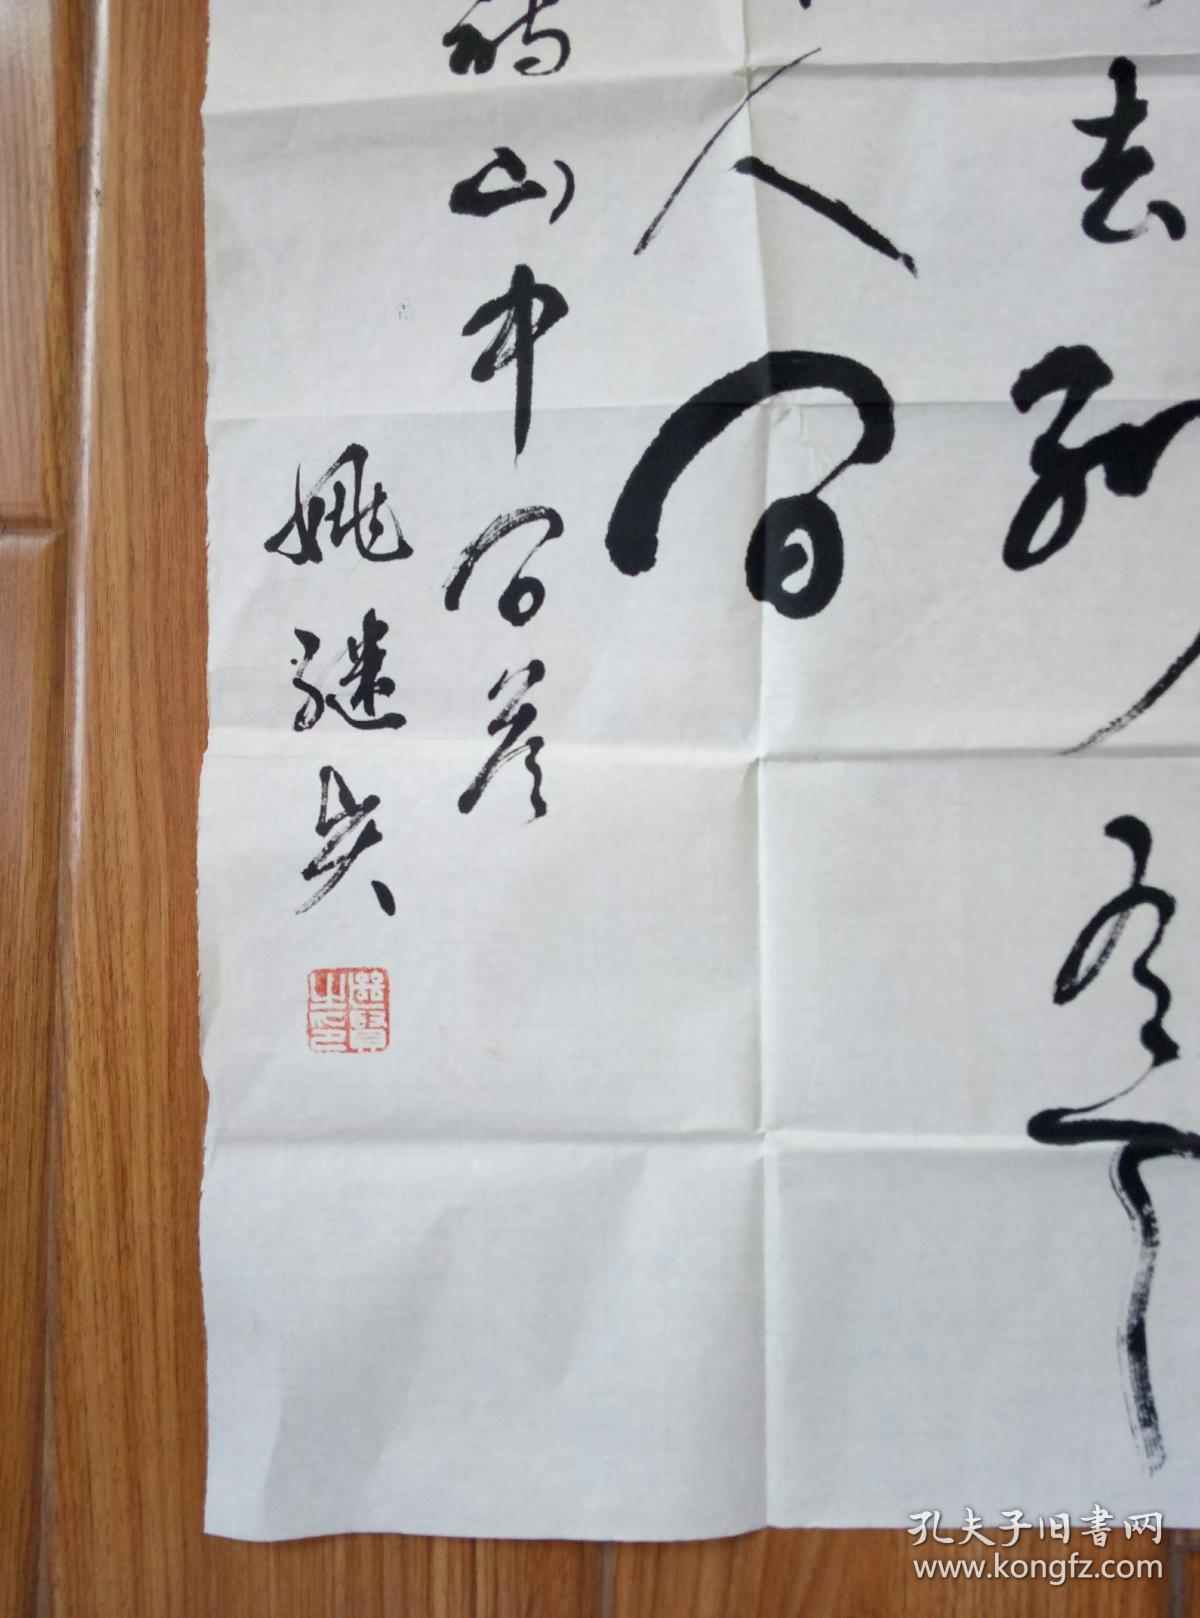 去别有天
人间
山中问答
姚继
孔夫子旧书网
www.kongfz.com